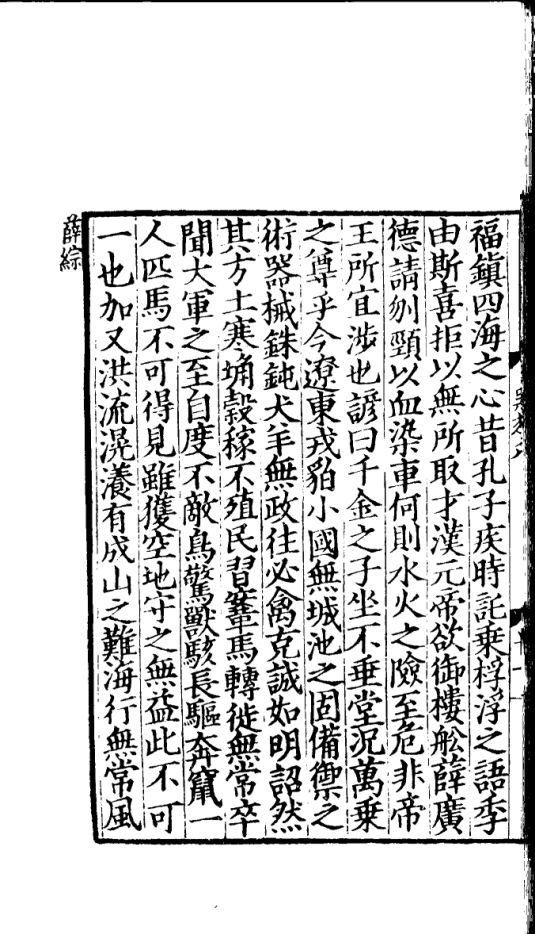 福鎮四海之心昔孔子疾時託乗桴浮之語季
由斯喜拒以無所取才漢元帝欲御樓舩薛廣
德請刎頸以血染車何則水火之險至危非帝
王所宜涉也諺曰千金之子坐不垂堂況萬乗
之尊乎今遼東戎貊小國無城池之固備禦之
術器械銖鈍犬羊無政往必禽克誠如明詔然
其方土寒埆穀稼不殖民習鞌馬轉徙無常卒
聞大軍之至自度不敵鳥驚獸駭長驅奔竄一
人匹馬不可得見雖獲空地守之無益此不可
一也加又洪流滉瀁有成山之難海行無常風
薛綜